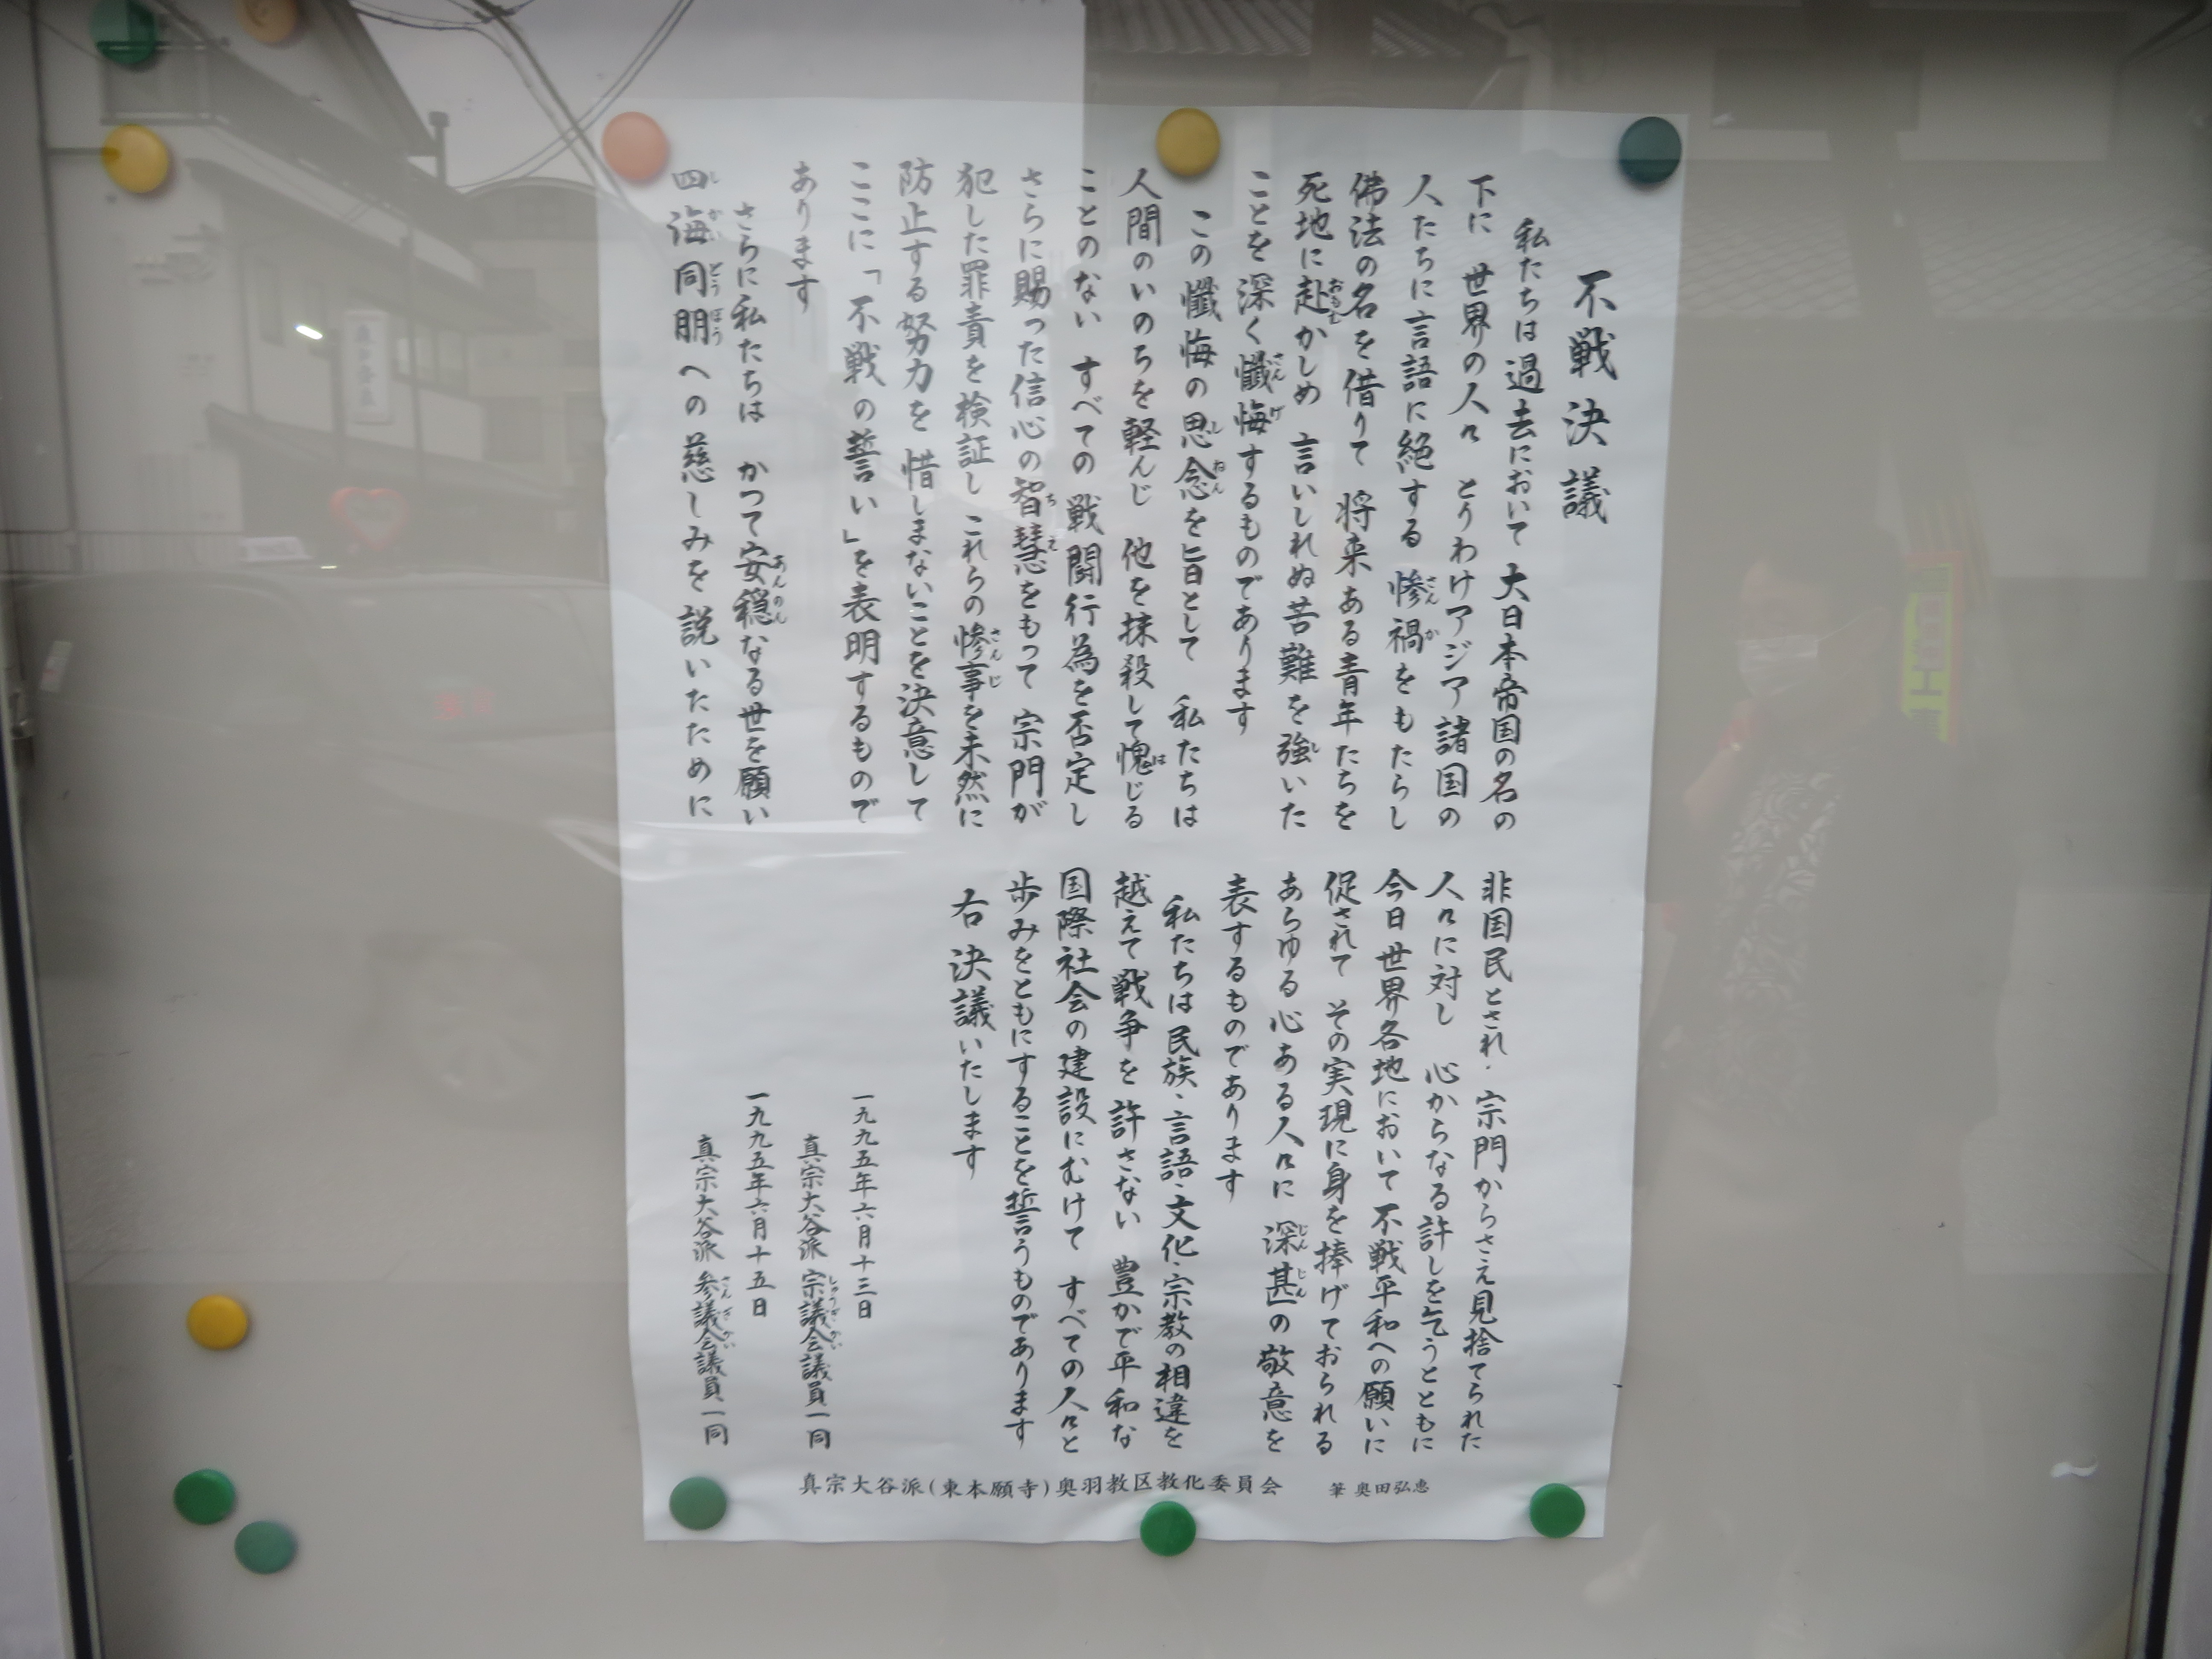 不戦決議
私たちは過去において 大日本帝国の名の
下に 世界の人々 とりわけアジア諸国の
人たちに言語に絶する 惨禍をもたらし
佛法の名を借りて 将来ある青年たちを
死地に赴かしめ 言いしれぬ苦難を強いた
ことを深く懺悔するものであります
この懺悔の思念を旨として 私たちは
人間のいのちを軽んじ 他を抹殺して愧じる
ことのない すべての戦闘行為を否定し
さらに賜った信心の智慧をもって 宗門が
犯した罪責を検証し これらの惨事を未然に
防止する努力を 惜しまないことを決意して
ここに「不戦の誓い」を表明するもので
あります
さらに私たちは かつて安穏なる世を願い
四海同朋への慈しみを説いたために
非国民とされ、宗門からさえ見捨てられた
人々に対し 心からなる許しを乞うとともに
今日世界各地において不戦平和への願いに
促されて その実現に身を捧げておられる
あらゆる心ある人々に 深甚の敬意を
表するものであります
私たちは民族、言語、文化、宗教の相違を
越えて戦争を許さない 豊かで平和な
国際社会の建設にむけて すべての人々と
歩みをともにすることを誓うものであります
右決議いたします
一九九五年六月十三日
真宗大谷派 宗議会議員一同
一九九五年六月十五日
真宗大谷派 参議会議員一同
真宗大谷派(東本願寺)奥羽教区教化委員会 筆 奥田弘恵